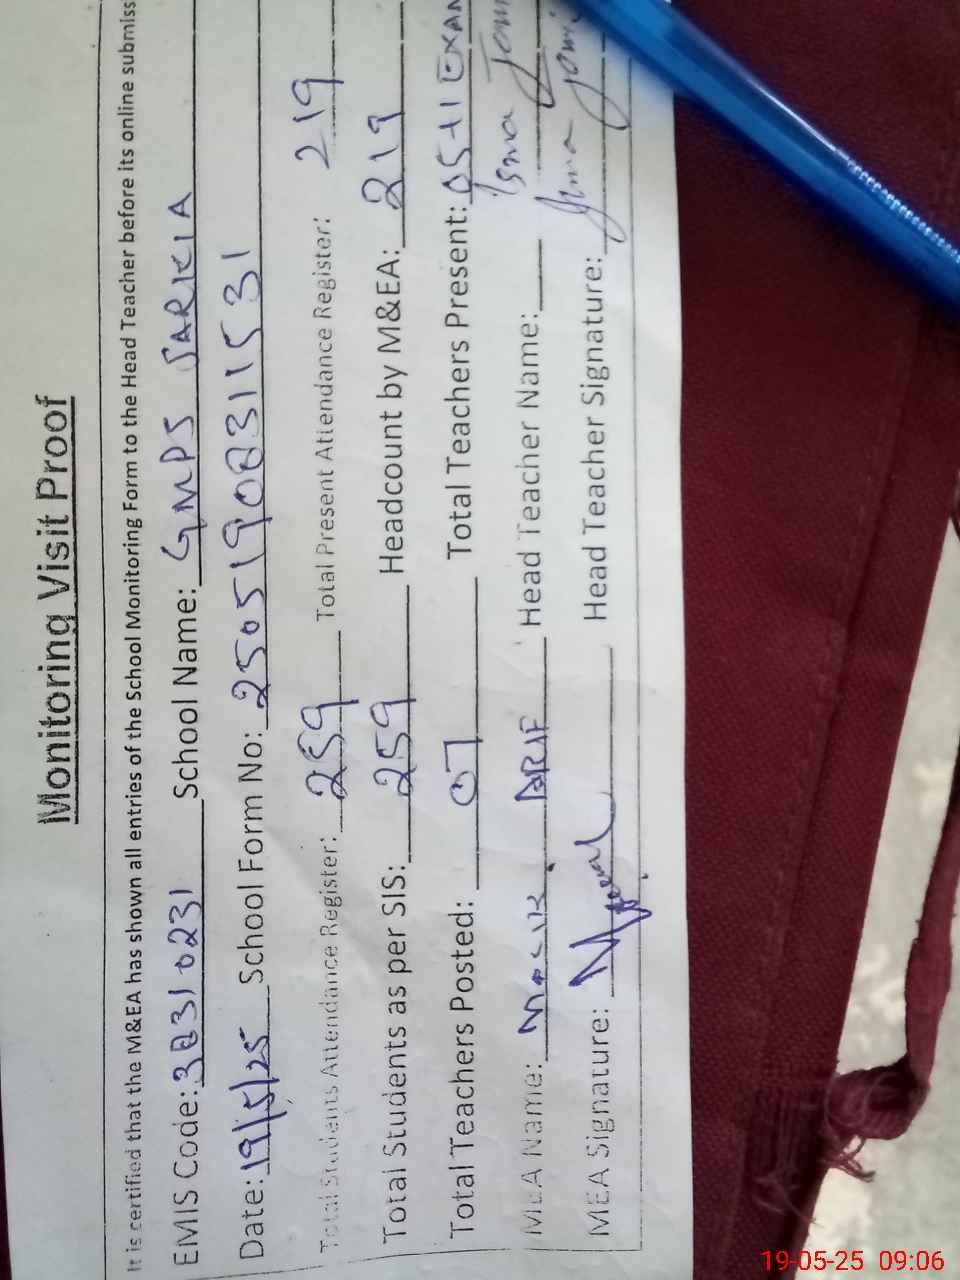 Monitoring Visit Proof
It is certified that the M&EA has shown all entries of the School Monitoring Form to the Head Teacher before its online submiss
EMIS Code: 38310231 School Name: GMPS SARKIA
Date: 19/5/25 School Form No: 25051908311531
Total Students Attendance Register: 259 Total Present Attendance Register: 219
Total Students as per SIS: 259 Headcount by M&EA: 219
Total Teachers Posted: 07 Total Teachers Present: 05+1 EXAM
MEA Name: ARIF Head Teacher Name: Isma
MEA Signature: Head Teacher Signature:
19-05-25 09:06